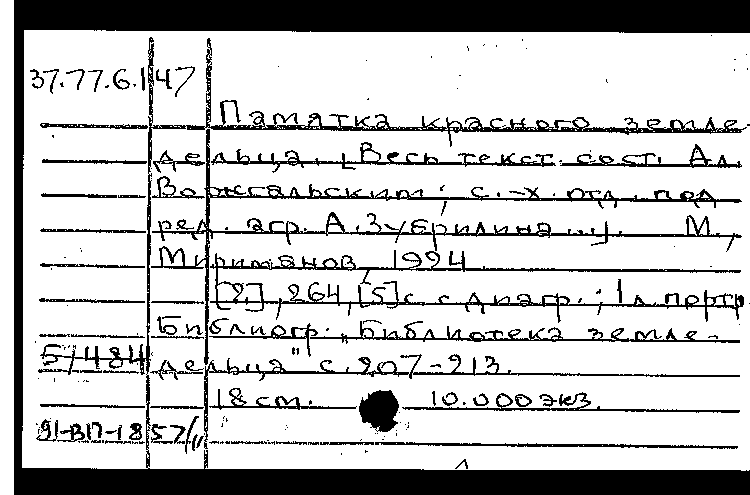 37.77.6.1 47
Памятка красного земле-
дельца. [Весь текст сост. Ал.
Вокзальским; с.-х. отд. под
ред. агр. А. Зубрилина...]. М.,
Мириманов, 1924
[2], 264, [5] с. с диагр.; 1 л. портр.
Библиогр. "Библиотека земле-
51484 дельца" с. 207-213.
18 см. 10.000 экз.
91-ВП-18 57/